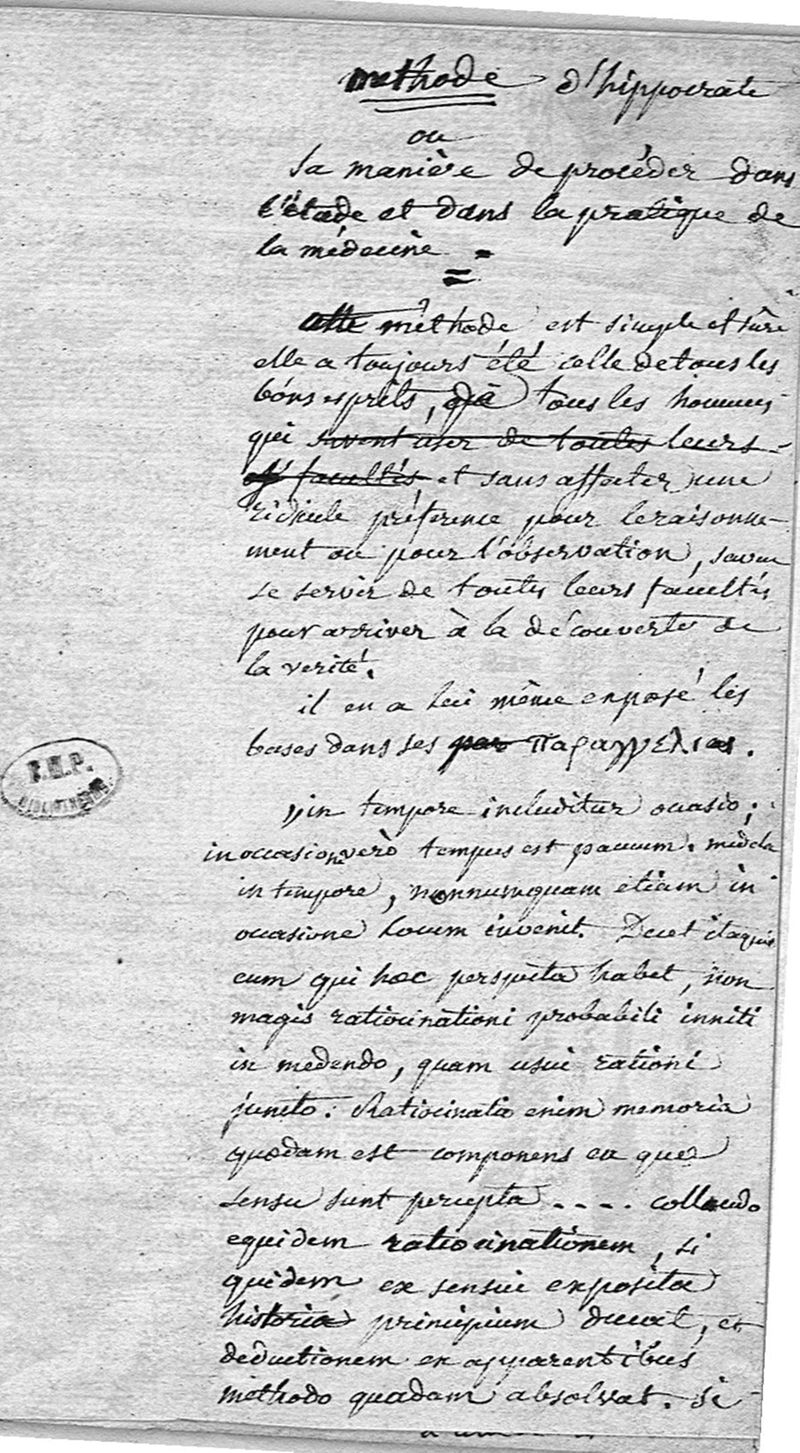 methode d'hippocrate
ou
sa manière de procéder dans
l'étude et dans la pratique de
la médecine =
cette méthode est simple et sûre
elle a toujours été celle de tous les
bons esprits, tous les hommes
qui savent user de toutes leurs
facultés et sans affecter une
ridicule préference pour le raisonne-
ment ou pour l'observation, savent
se servir de toutes leurs facultés
pour arriver à la découverte de
la verité.
il en a lui même exposé les
bases dans ses par παραγγελιαι.
in tempore includitur occasio;
in occasione verò tempus est paucum. medela
in tempore, nonnumquam etiam in
occasione locum invenit. Decet itaque
eum qui hoec perspecta habet, non
magis ratiocinationi probabili inniti
in medendo, quam usui rationi
juncto. Ratiocinatio enim memoria
quœdam est componens ea que
sensu sunt percepta .... collaudo
equidem ratiocinationem, si
quidem ex sensui exposita
historia principium ducat, et
deductionem ex apparentibus
methodo quadam absolvat. si